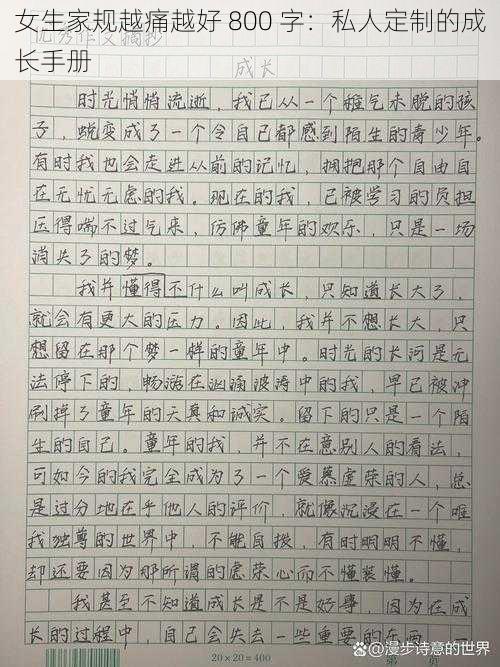 女生家规越痛越好 800 字：私人定制的成
长手册
优秀作文摘抄
成长
时光悄悄流逝，我已从一个稚气未脱的孩
子，蜕变成了一个令自己都感到陌生的青少年。
有时我也会走进从前的记忆，拥抱那个自由自
在无忧无虑的我。现在的我，已被学习的负担
压得喘不过气来，仿佛童年的欢乐，只是一场
消失了的梦。
我并懂得不什么叫成长，只知道长大了，
就会有更大的压力。因此，我并不想长大，只
想留在那个梦一样的童年中。时光的长河是无
法停下的，畅游在汹涌波涛中的我，早已被冲
刷掉了童年的天真和诚实。留下的只是一个陌
生的自己。童年的我，并不在意别人的看法，
可如今的我完全成为了一个爱慕虚荣的人，总
是过分地在乎他人的评价，就像沉浸在一个唯
我独尊的世界中，不能自拔，有时明明不懂，
却还要因为那所谓的虚荣心而不懂装懂。
我甚至不知道成长是不是好事，因为在成
长的过程中，自己会失去一些重要的东西
20×20=400
第 页
@漫步诗意的世界